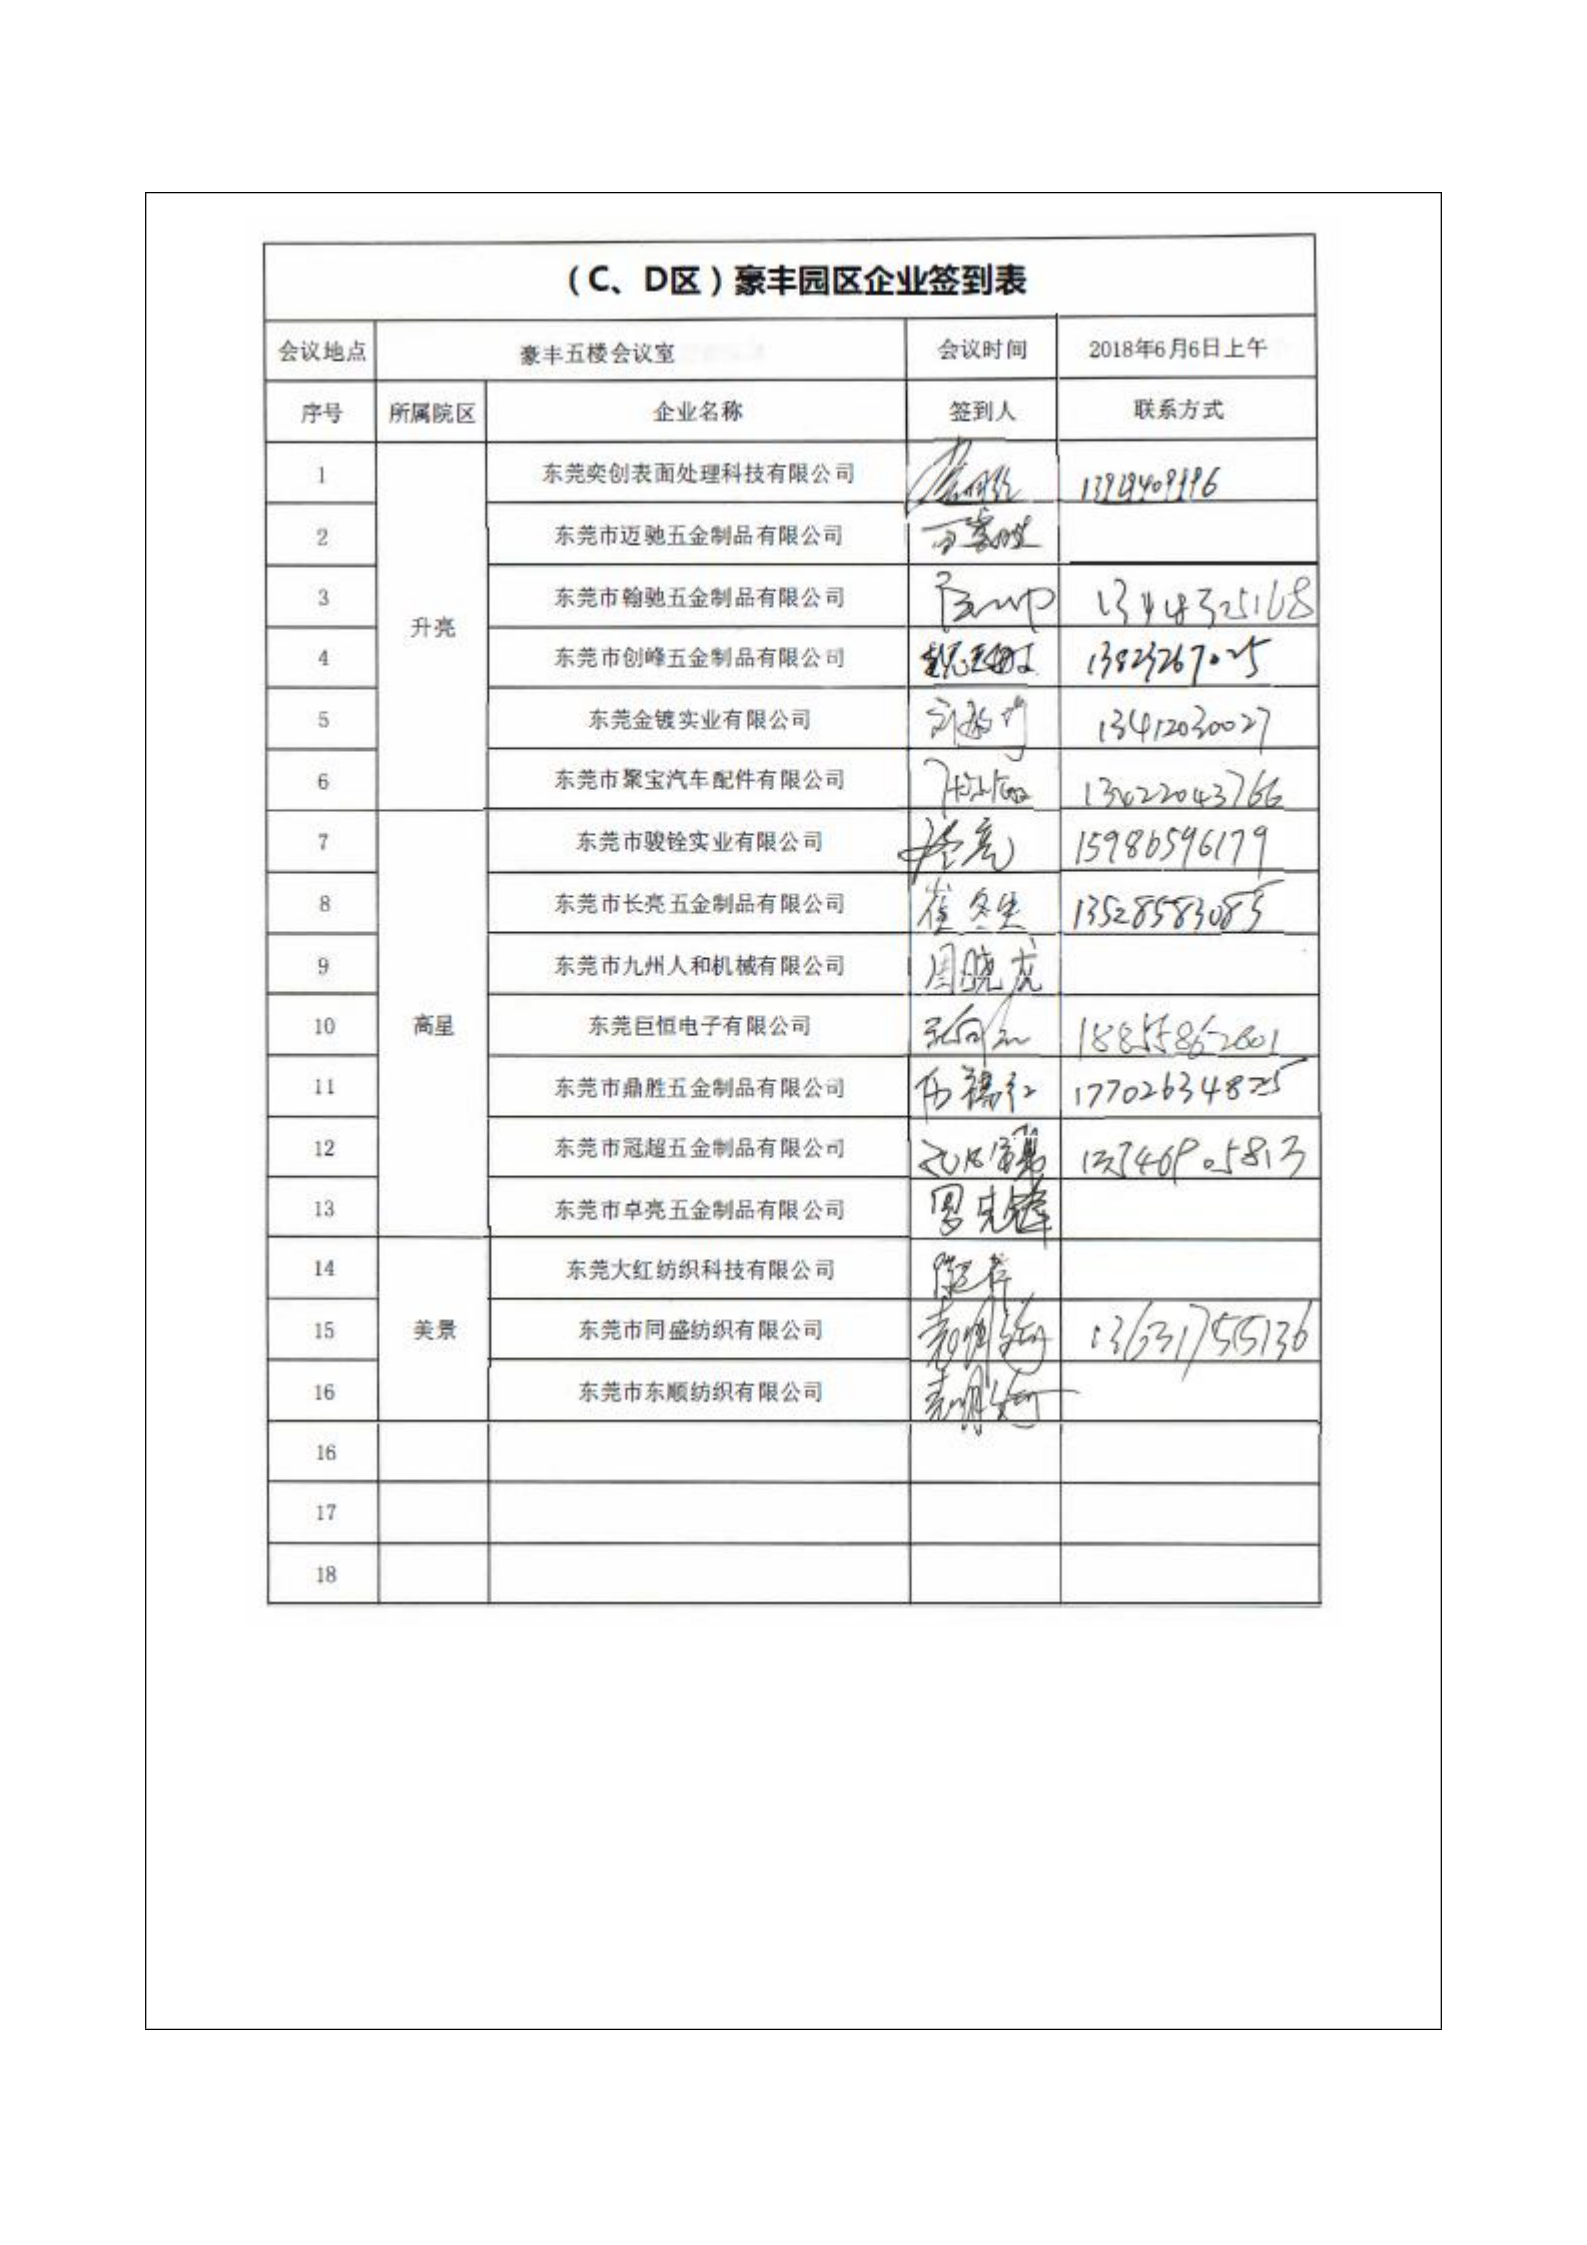 （C、D区）豪丰园区企业签到表
会议地点 豪丰五楼会议室 会议时间 2018年6月6日上午
序号 所属院区 企业名称 签到人 联系方式
1 东莞奕创表面处理科技有限公司
2 东莞市迈驰五金制品有限公司
3 东莞市翰驰五金制品有限公司
升亮
4 东莞市创峰五金制品有限公司 13823267025
5 东莞金镀实业有限公司 13412030027
6 东莞市聚宝汽车配件有限公司
7 东莞市骏铨实业有限公司 15986596179
8 东莞市长亮五金制品有限公司 13528583085
9 东莞市九州人和机械有限公司 周晓虎
10 高星 东莞巨恒电子有限公司 18855862601
11 东莞市鼎胜五金制品有限公司 17702634825
12 东莞市冠超五金制品有限公司
13 东莞市卓亮五金制品有限公司 罗先锋
14 东莞大红纺织科技有限公司
15 美景 东莞市同盛纺织有限公司 13631755136
16 东莞市东顺纺织有限公司
16
17
18